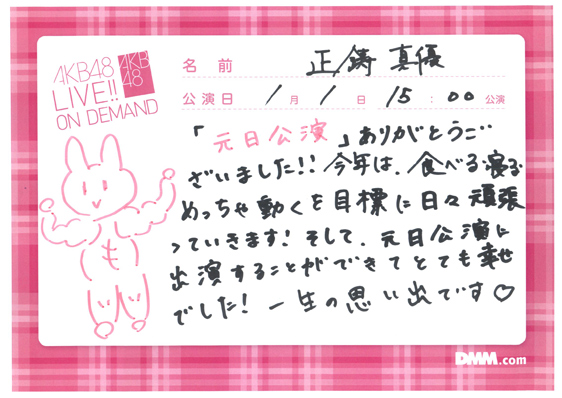 AKB48
LIVE!!
ON DEMAND
AKB
48
名前 正鋳 真優
公演日 1月1日 15:00公演
「元日公演」ありがとうご
ざいました!! 今年は、食べる寝る
めっちゃ動くを目標に日々頑張
っていきます! そして、元日公演に
出演することができてとても幸せ
でした! 一生の思い出です♡
DMM.com